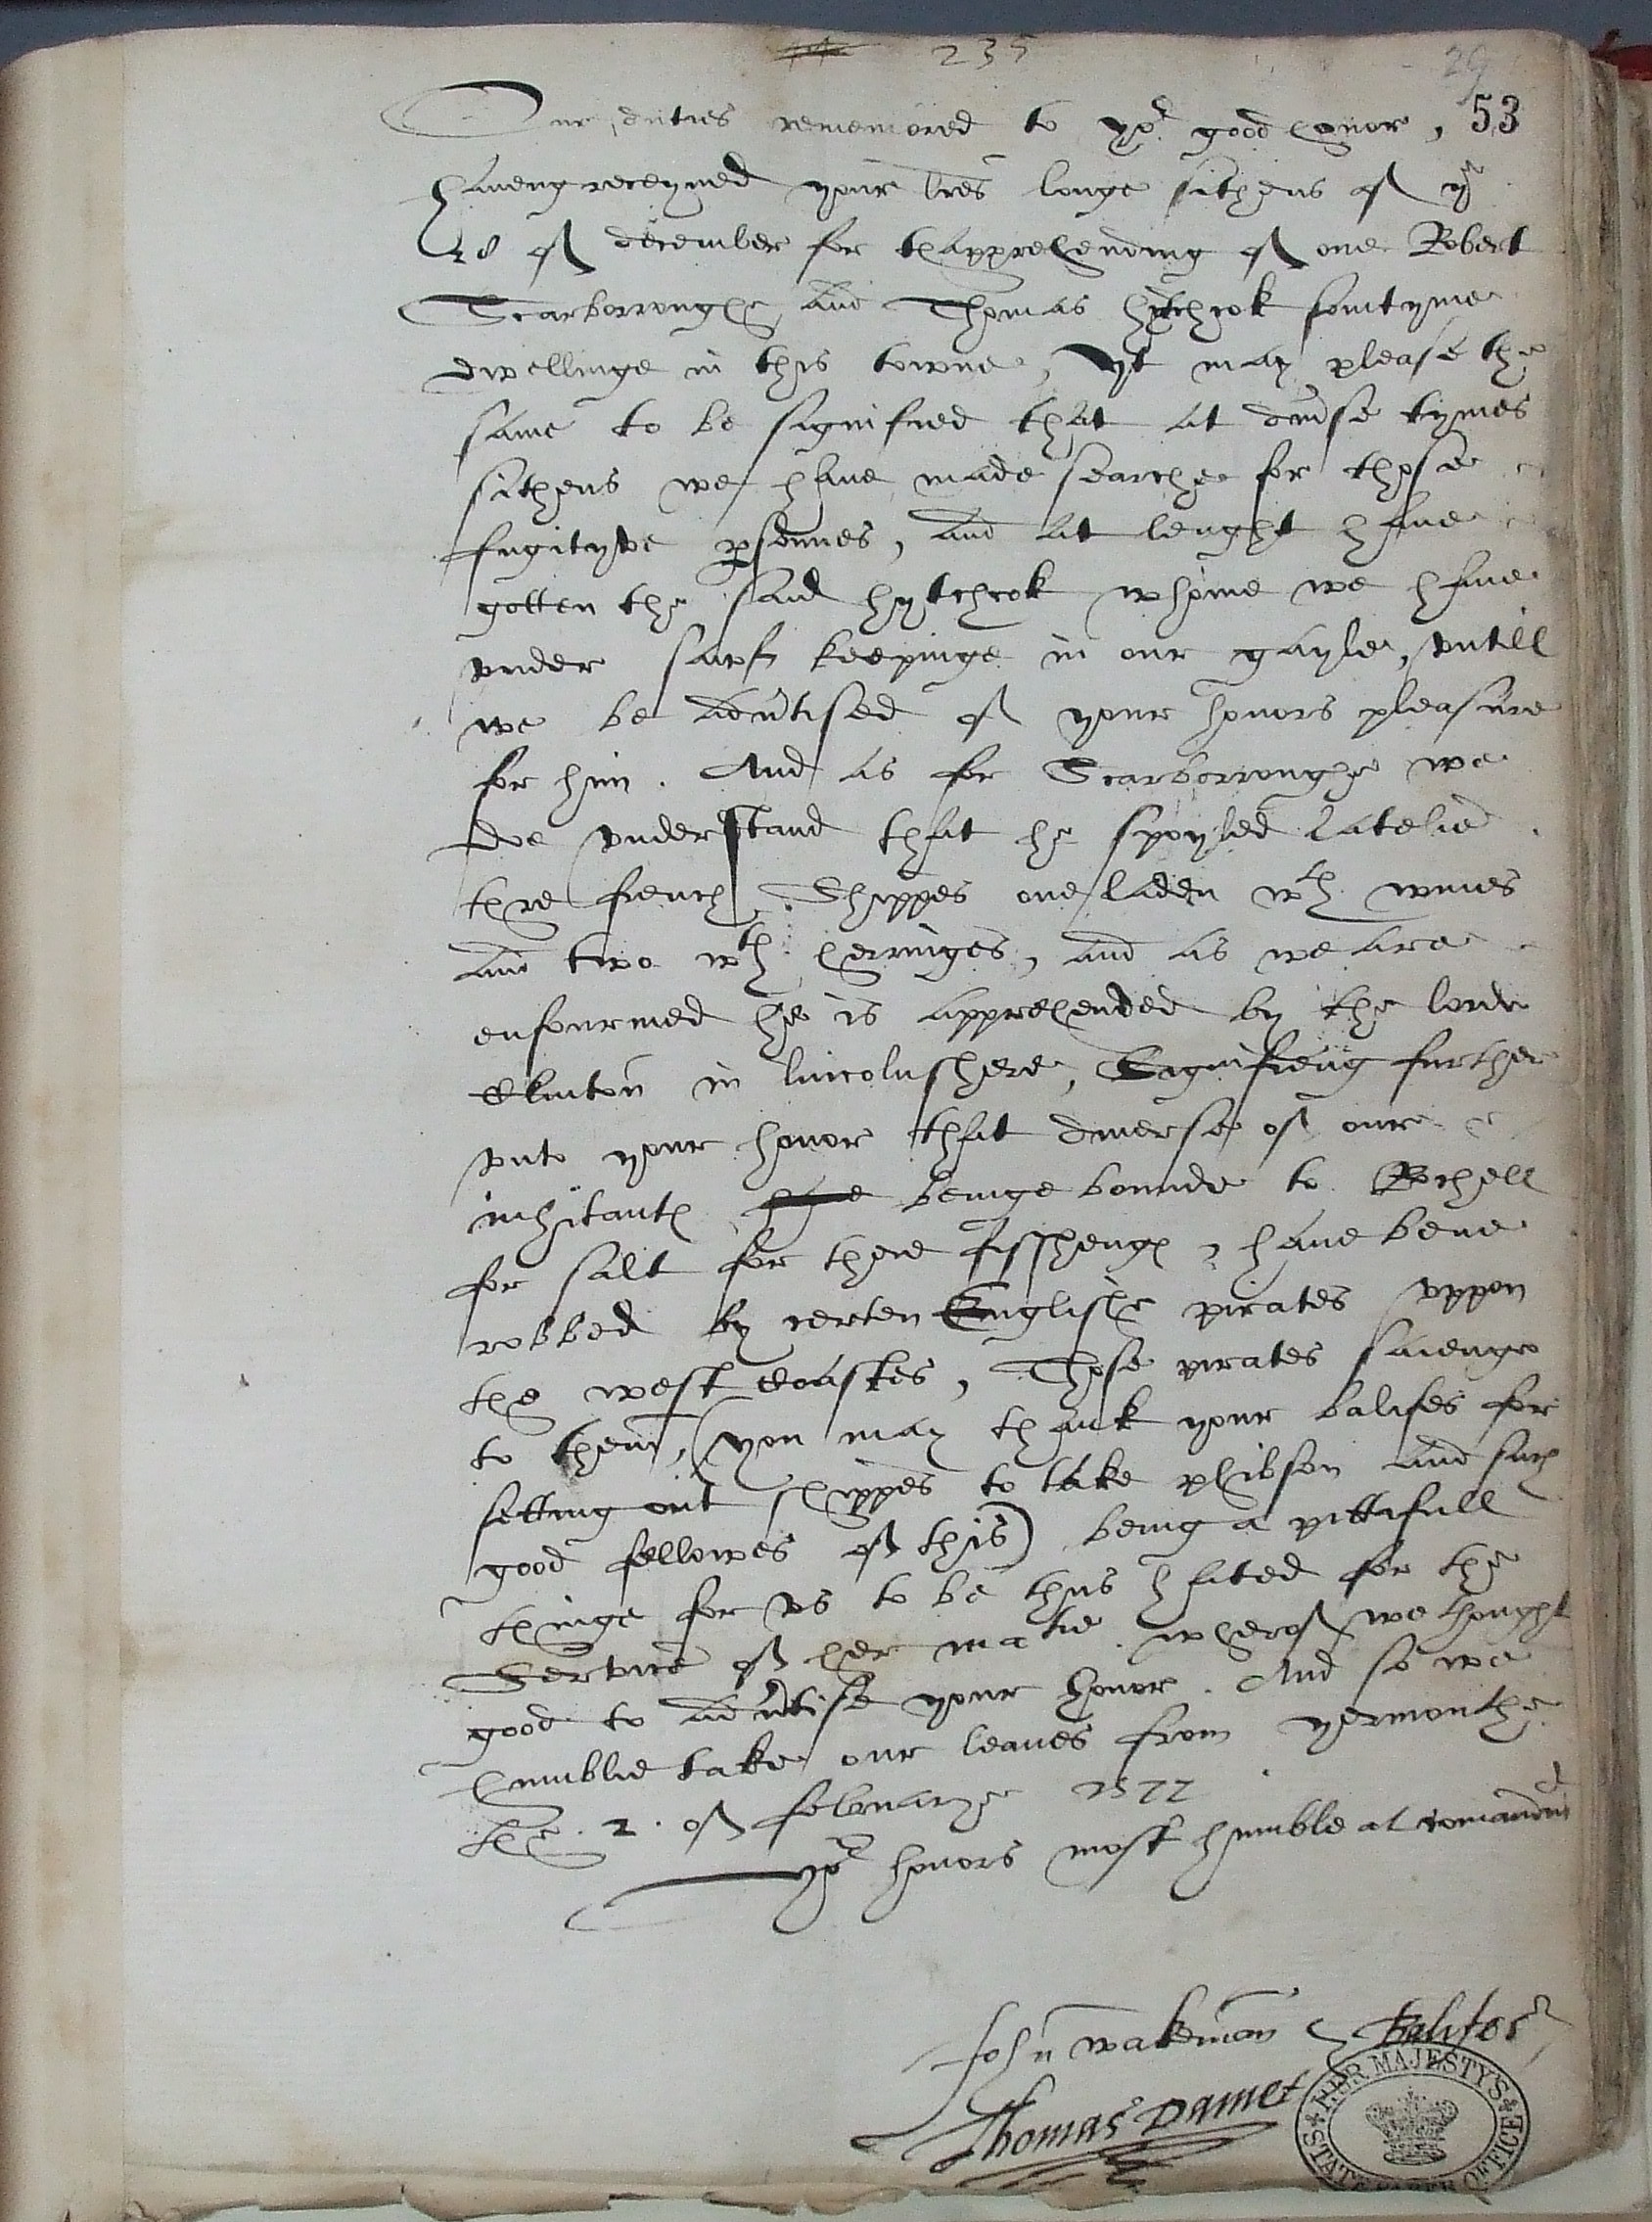 235
29
53
Our duties remembred to yor good honor,
haveng receyved your lres longe sithens of ye
28 of december for thapprehending of one Robert
Scarborroughe and Thomas hytchcok somtyme
dwellinge in this towne, Yt may please the
same to be signified that at divse tymes
sithens we have made searche for those
fugityve psonnes, and at lenght have
gotten the said hytchcok whome we have
vnder saef keepinge in our gayle, vntill
we be advtised of your honors pleasure
for him. And as for Scarborroughe we
doe vnderstand that he spoyled latelie
thre french Shippes one laden wth wines
and two wth herringes, and as we are
enfourmed he is apprehended by the lorde
Clinton in lincolnshere, Signifieng further
vnto your honor that diverse of our
inhitants have beinge bounde to Rochell
for salt for there fissheng, have bene
robbed by certen Englishe pirates vppon
the west coastes, Those pirates saienge
to them, (you may thank your balifes for
setting out shippes to take phibson and such
good fellowes of this) being a pittifull
thinge for vs to be thus hated for the
Service of her matie wherof we thought
good to advtise your honor. And so we
humblie take our leaves from yermouthe
the .2. of februarye 1577
yor honors most humble at comaundmt
John wakeman Balifes
Thomas Damet
HER MAJESTY'S STATE PAPER OFFICE